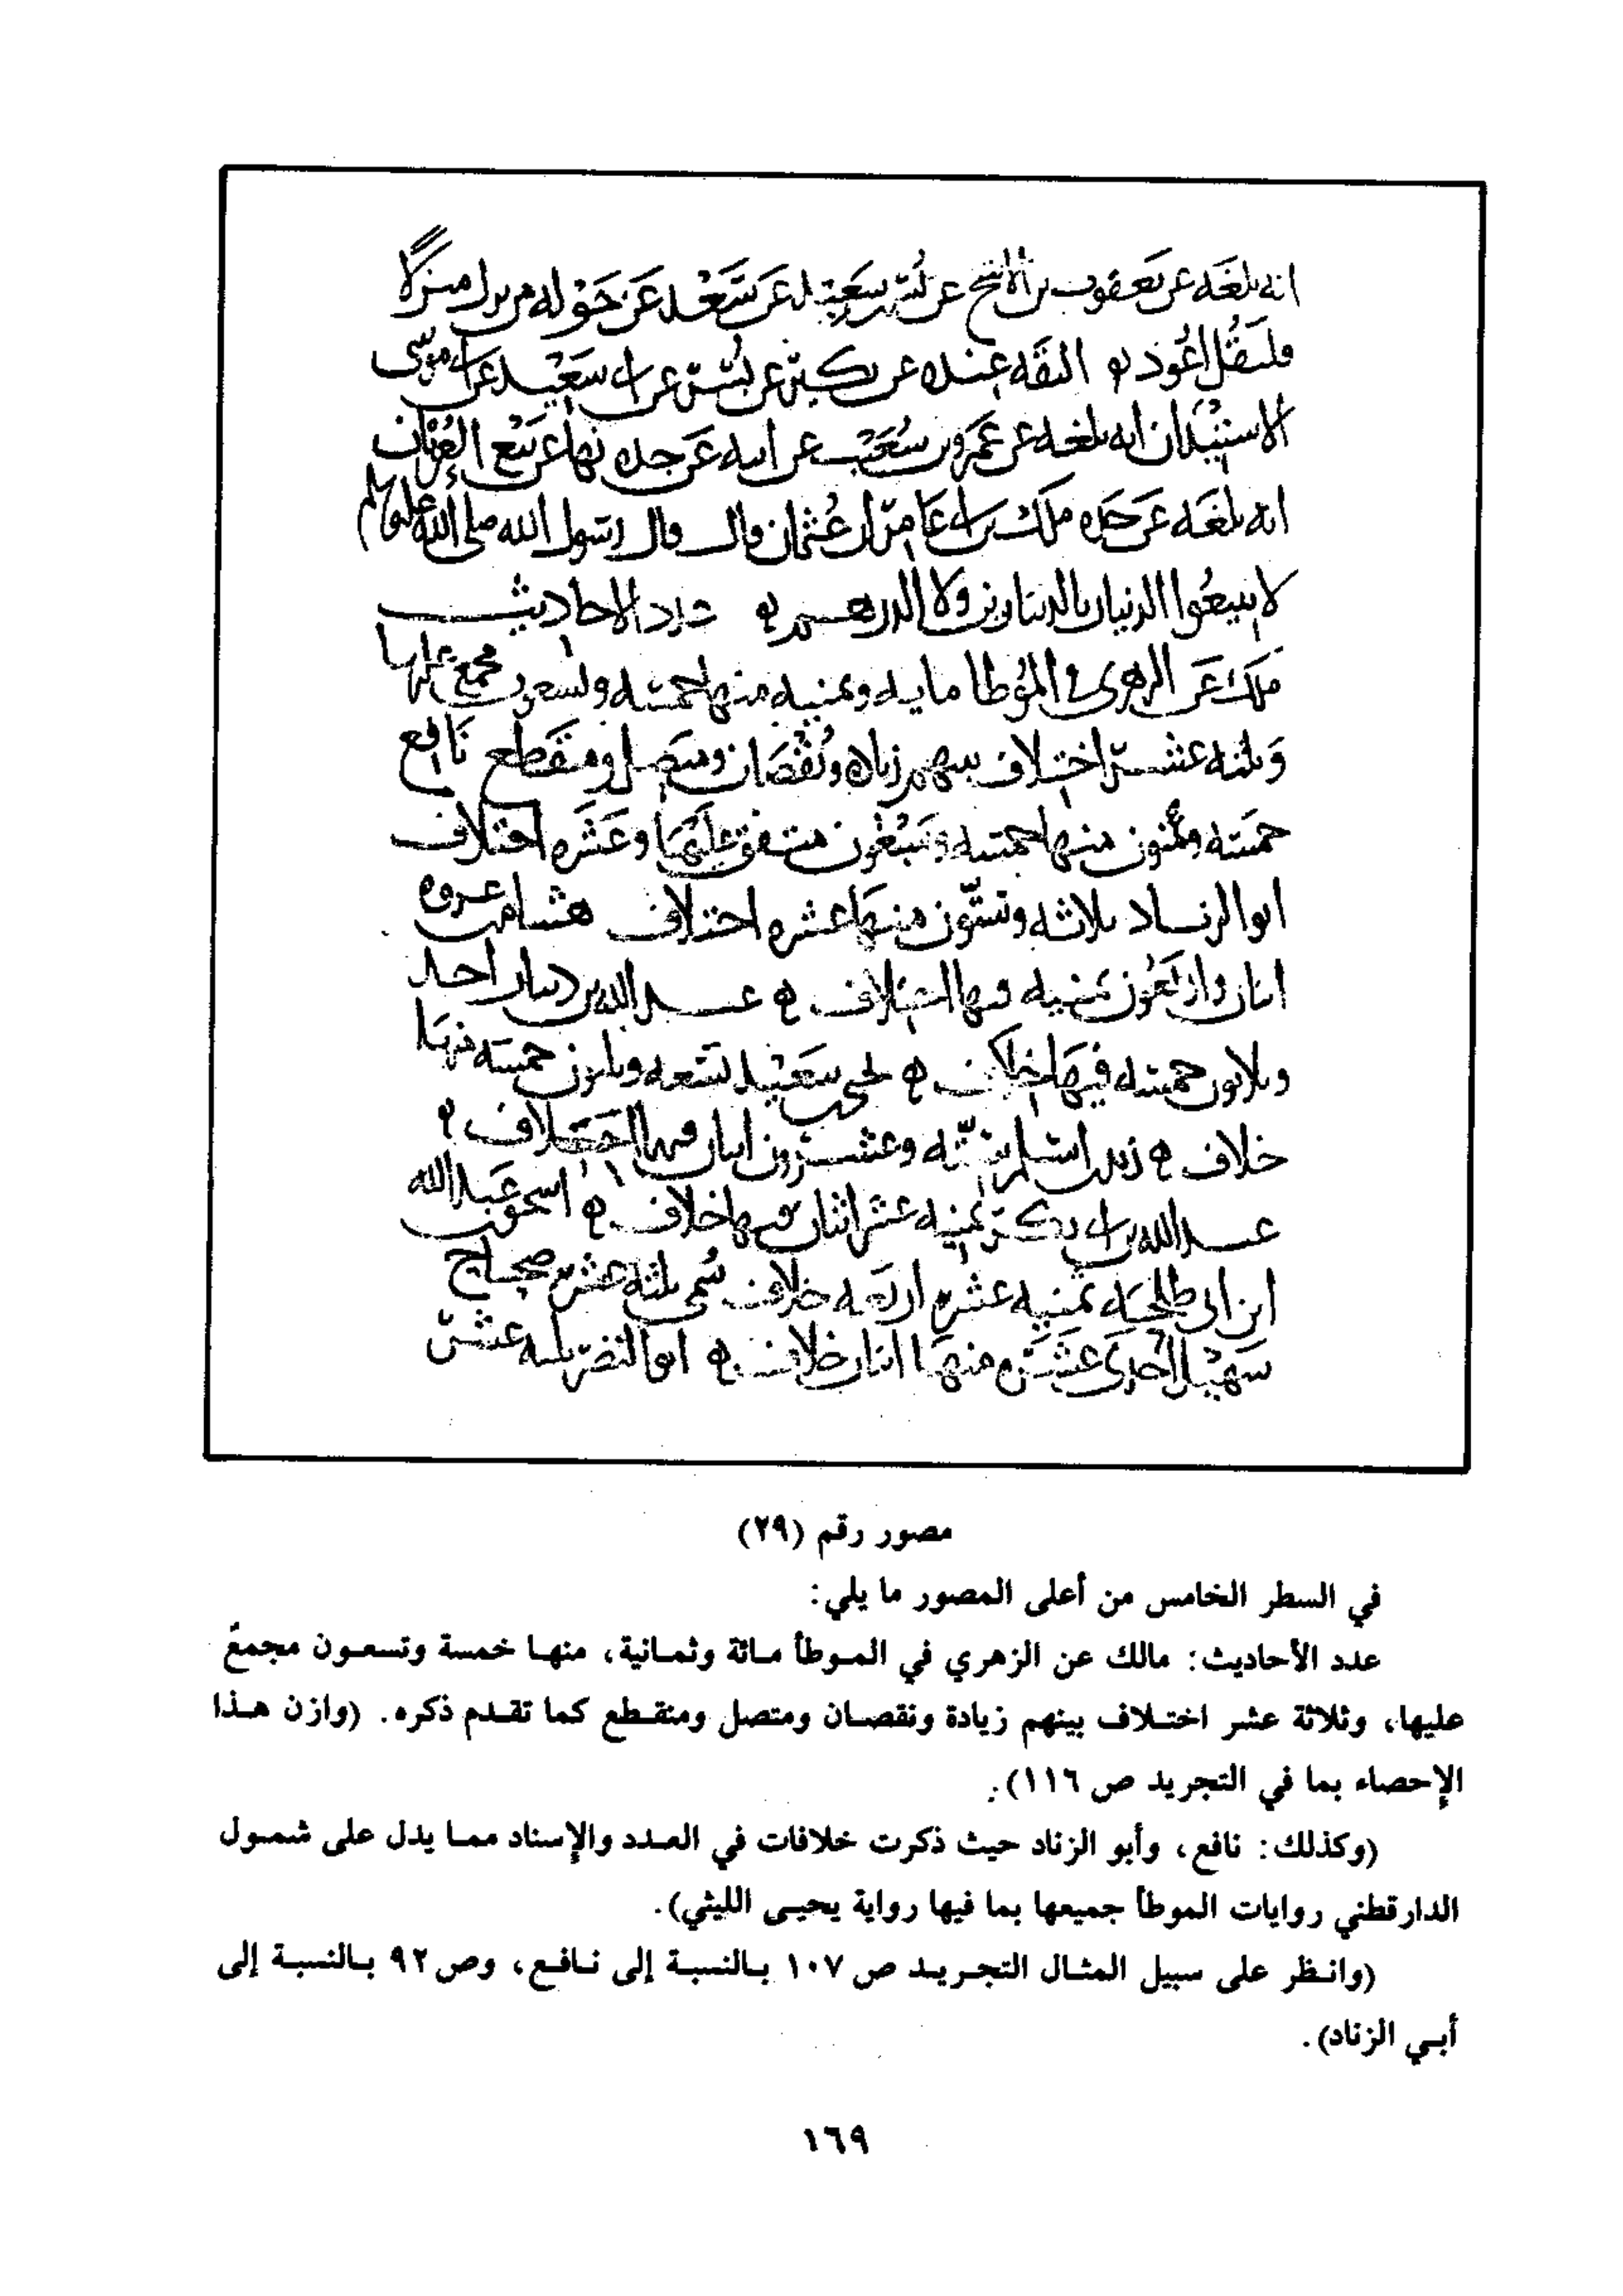 انه بلغه عن يعقوب بن الاشج عن بسر بن سعيد عن سعد عن خوله من نزل منزلا
فليقل اعوذ ه الثقه عنده عن بكير عن بسر عن ابي سعيد عن ابي موسى
الاستيذان انه بلغه عن عمرو بن شعيب عن ابيه عن جده نها عن بيع العربان
انه بلغه عن جده ملك بن ابي عامر ان عثمان قال قال رسول الله صلى الله عليه وسلم
لا تبيعوا الدينار بالدينارين ولا الدرهم ه عدد الاحاديث
ملك عن الزهري في الموطا مايه وثمنيه منها خمسه وتسعون مجمع عليها
وثلثه عشر اختلاف بينهم زياده ونقصان ومتصل ومنقطع نافع
خمسه وثمنون منها خمسه وسبعون متفق عليها وعشره اختلاف
ابو الزناد ثلاثه وستون منها عشره اختلاف هشام بن عروه
اثنان واربعون ثمنيه فيها اختلاف ه عبد الله بن دينار احد
وثلاثون خمسه فيها اختلاف ه يحيى بن سعيد تسعه وثلثون خمسه منها
خلاف ه زيد بن اسلم سته وعشرون اثنان فيها اختلاف ه
عبد الله بن ابي بكر ثمنيه عشر اثنان فيها خلاف ه اسحق بن عبد الله
ابن ابي طلحه ثمنيه عشره اربعه خلاف سمي ثلثه عشر صحاح
سهيل احدى عشر منها اثنان خلاف ه ابو النضر ثلثه عشر
مصور رقم (٢٩)
في السطر الخامس من أعلى المصور ما يلي:
عدد الأحاديث: مالك عن الزهري في الموطأ مائة وثمانية، منها خمسة وتسعون مجمعٌ
عليها، وثلاثة عشر اختلاف بينهم زيادة ونقصان ومتصل ومنقطع كما تقدم ذكره. (وازن هذا
الإحصاء بما في التجريد ص ١١٦).
(وكذلك: نافع، وأبو الزناد حيث ذكرت خلافات في العدد والإسناد مما يدل على شمول
الدارقطني روايات الموطأ جميعها بما فيها رواية يحيى الليثي).
(وانظر على سبيل المثال التجريد ص ١٠٧ بالنسبة إلى نافع، وص ٩٢ بالنسبة إلى
أبي الزناد).
١٦٩